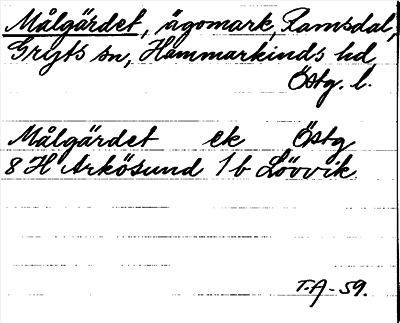 Målgärdet, ägomark, Ramsdal,
Gryts sn, Hammarkinds hd,
Östg. l.
Målgärdet ek Östg
8 H Arkösund 1 b Lövvik
T.A - 59.